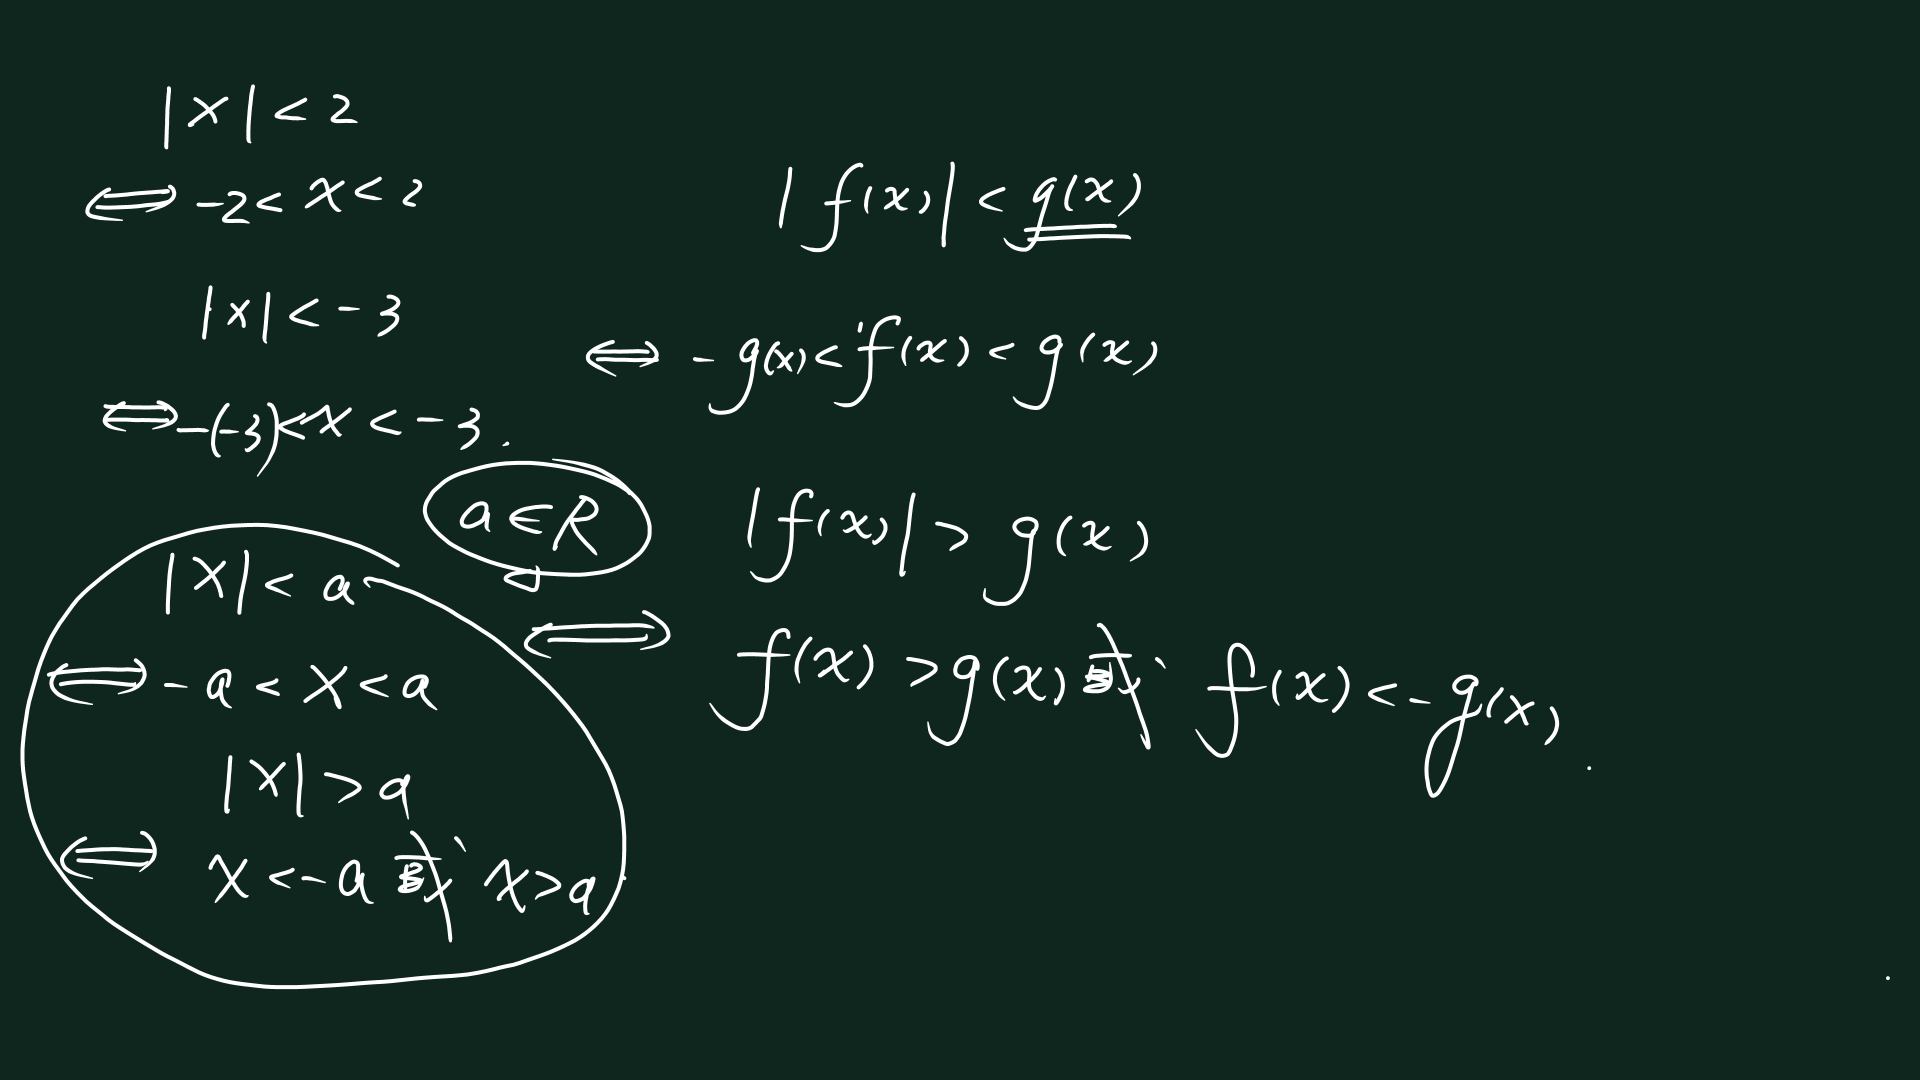 |x| < 2
⟺ -2 < x < 2
|x| < -3
⟺ -(-3) < x < -3.
a ∈ R
|x| < a
⟺ -a < x < a
|x| > a
⟺ x < -a 或 x > a
|f(x)| < g(x)
⟺ -g(x) < f(x) < g(x)
|f(x)| > g(x)
⟺ f(x) > g(x) 或 f(x) < -g(x).